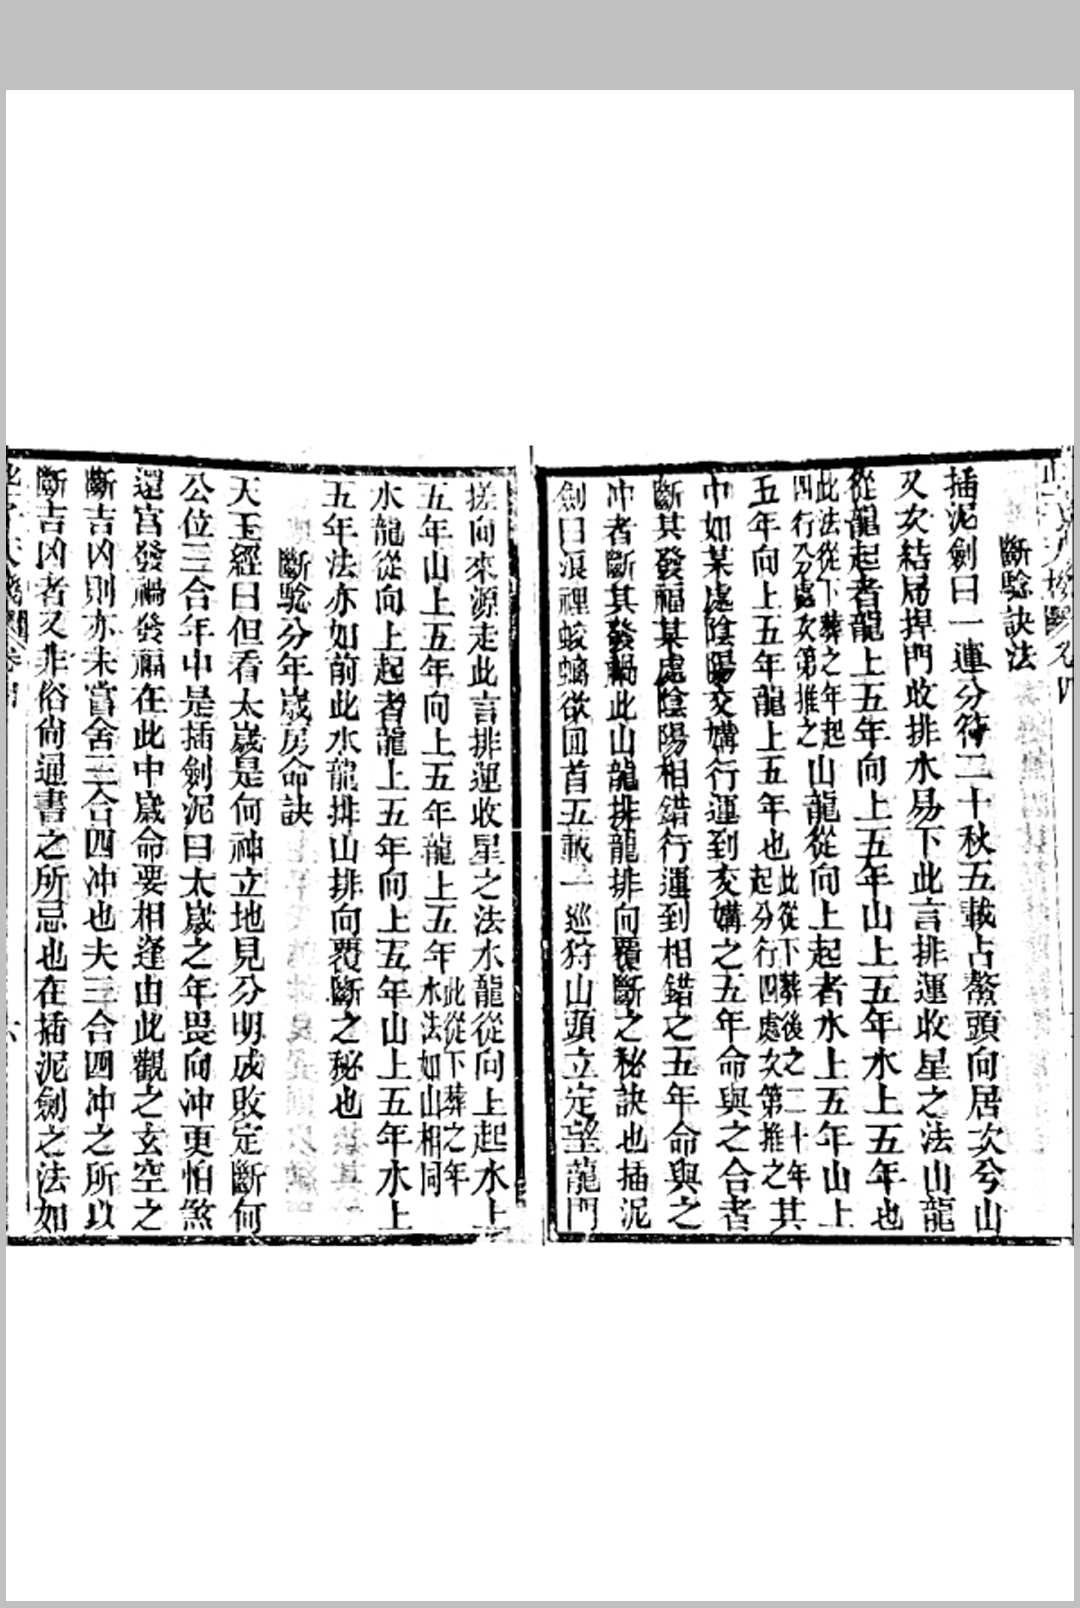 斷騐訣法
插泥劍曰一運分符二十秋五載占鰲頭向居次兮山
又次結局捍門收排水易下此言排運收星之法山龍
從龍起者龍上五年向上五年山上五年水上五年也
此法從下葬之年起
四行分處次第推之
山龍從向上起者水上五年山上
五年向上五年龍上五年也
此從下葬後之二十年
起分行四處次第推之
其
中如某處陰陽交媾行運到交媾之五年命與之合者
斷其發福某處陰陽相錯行運到相錯之五年命與之
冲者斷其發禍此山龍排龍排向覆斷之秘訣也插泥
劍曰浪裡蛟螭欲回首五載一巡狩山頭立定望龍門
搓向來源走此言排運收星之法水龍從向上起水上
五年山上五年向上五年龍上五年
此從下葬之年
水法如山相同
水龍從向上起者龍上五年向上五年山上五年水上
五年法亦如前此水龍排山排向覆斷之秘也
斷騐分年嵗房命訣
天玉經曰但看太嵗是何神立地見分明成敗定斷何
公位三合年中是插劍泥曰太嵗之年畏向冲更怕煞
還宮發禍發福在此中嵗命要相逢由此觀之玄空之
斷吉凶則亦未嘗舍三合四冲也夫三合四冲之所以
斷吉凶者又非俗尚通書之所忌也在插泥劍之法如